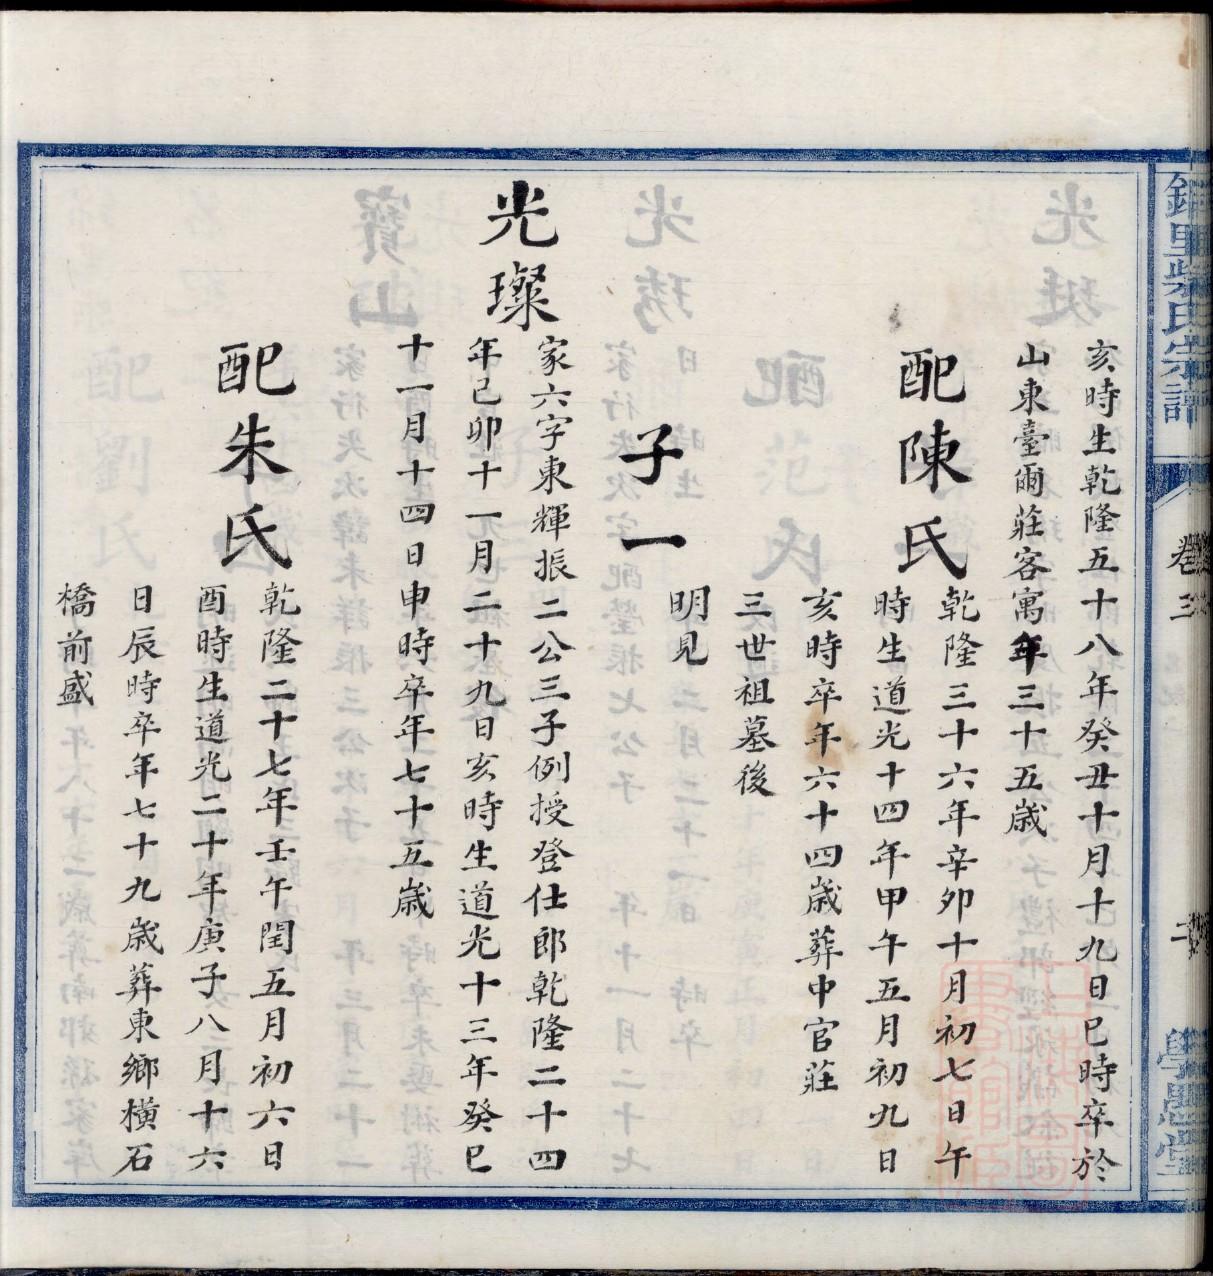 亥時生乾隆五十八年癸丑十月十九日巳時卒於
山東臺爾莊客寓年三十五歲
配陳氏
乾隆三十六年辛卯十月初七日午
時生道光十四年甲午五月初九日
亥時卒年六十四歲葬中官莊
三世祖墓後
子一
明見
光璨
家六字東輝振二公三子例授登仕郎乾隆二十四
年己卯十一月二十九日亥時生道光十三年癸巳
十一月十四日申時卒年七十五歲
配朱氏
乾隆二十七年壬午閏五月初六日
酉時生道光二十年庚子八月十六
日辰時卒年七十九歲葬東鄉橫石
橋前盛
卷三